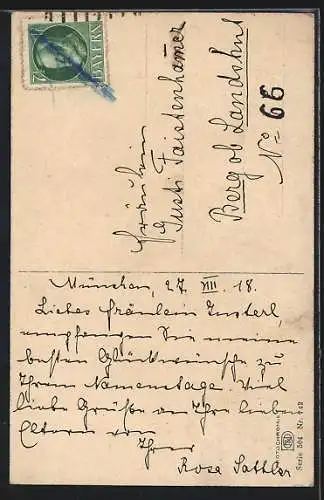 BAYERN
Fräulein
Gusti Faistenhamer
Berg ob Landshut
No 66
München, 27. VIII. 18.
Liebes Fräulein Gusterl,
empfangen Sie meine
besten Glückwünsche zu
Ihrem Namenstage. Viel
liebe Grüße an Ihre lieben
Eltern von
Ihrer
Rosa Sattler
Serie 504 Nr. 742